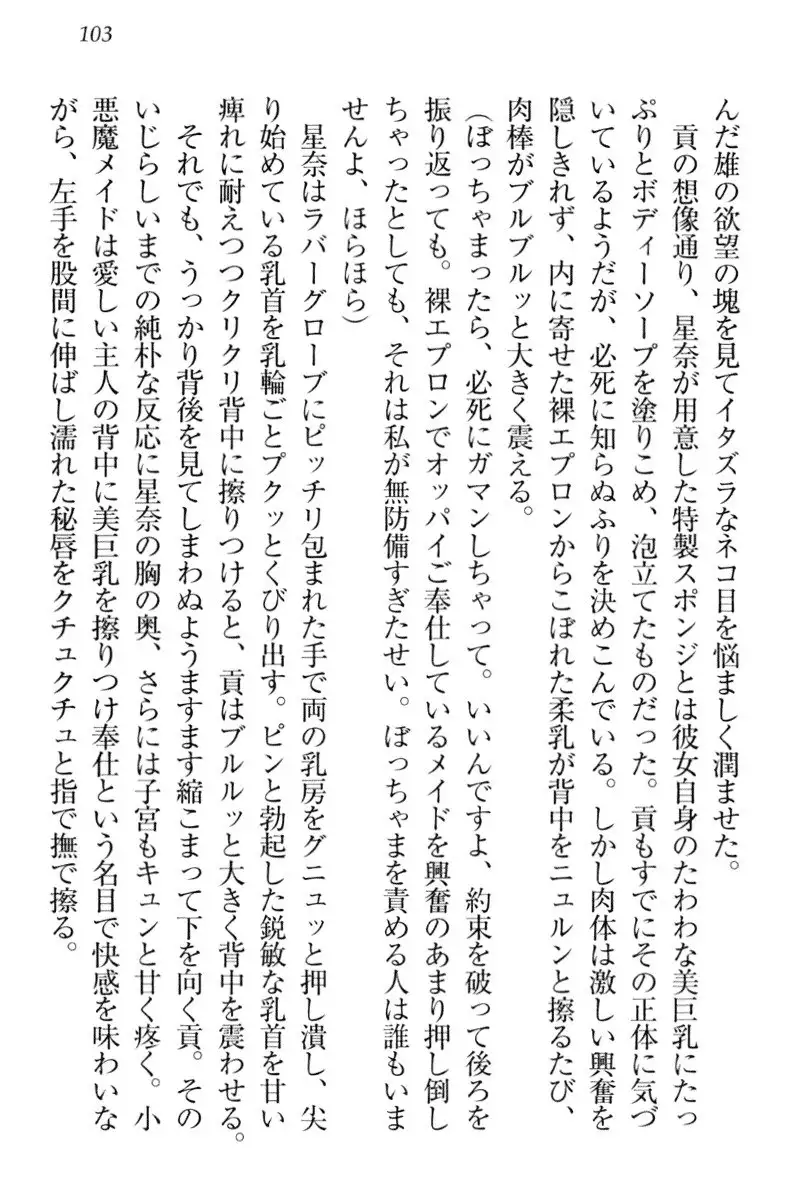 103
んだ雄の欲望の塊を見てイタズラなネコ目を悩ましく潤ませた。
貢の想像通り、星奈が用意した特製スポンジとは彼女自身のたわわな美巨乳にたっ
ぷりとボディーソープを塗りこめ、泡立てたものだった。貢もすでにその正体に気づ
いているようだが、必死に知らぬふりを決めこんでいる。しかし肉体は激しい興奮を
隠しきれず、内に寄せた裸エプロンからこぼれた柔乳が背中をニュルンと擦るたび、
肉棒がブルブルッと大きく震える。
（ぼっちゃまったら、必死にガマンしちゃって。いいんですよ、約束を破って後ろを
振り返っても。裸エプロンでオッパイご奉仕しているメイドを興奮のあまり押し倒し
ちゃったとしても、それは私が無防備すぎたせい。ぼっちゃまを責める人は誰もいま
せんよ、ほらほら）
星奈はラバーグローブにピッチリ包まれた手で両の乳房をグニュッと押し潰し、尖
り始めている乳首を乳輪ごとプクッとくびり出す。ピンと勃起した鋭敏な乳首を甘い
痺れに耐えつつクリクリ背中に擦りつけると、貢はブルルッと大きく背中を震わせる。
それでも、うっかり背後を見てしまわぬようますます縮こまって下を向く貢。その
いじらしいまでの純朴な反応に星奈の胸の奥、さらには子宮もキュンと甘く疼く。小
悪魔メイドは愛しい主人の背中に美巨乳を擦りつけ奉仕という名目で快感を味わいな
がら、左手を股間に伸ばし濡れた秘唇をクチュクチュと指で撫で擦る。